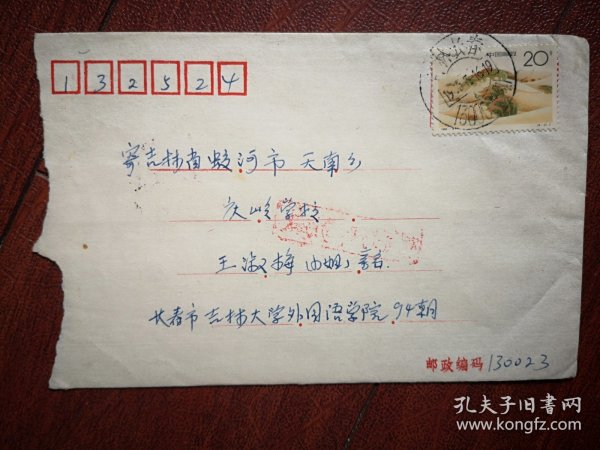 132524
中国邮政 20
寄吉林省蛟河市 天南乡
庆岭学校
王淑梅 (姐) 亲启.
长春市吉林大学外国语学院 94朝
邮政编码 130023
孔夫子旧书网
www.kongfz.com